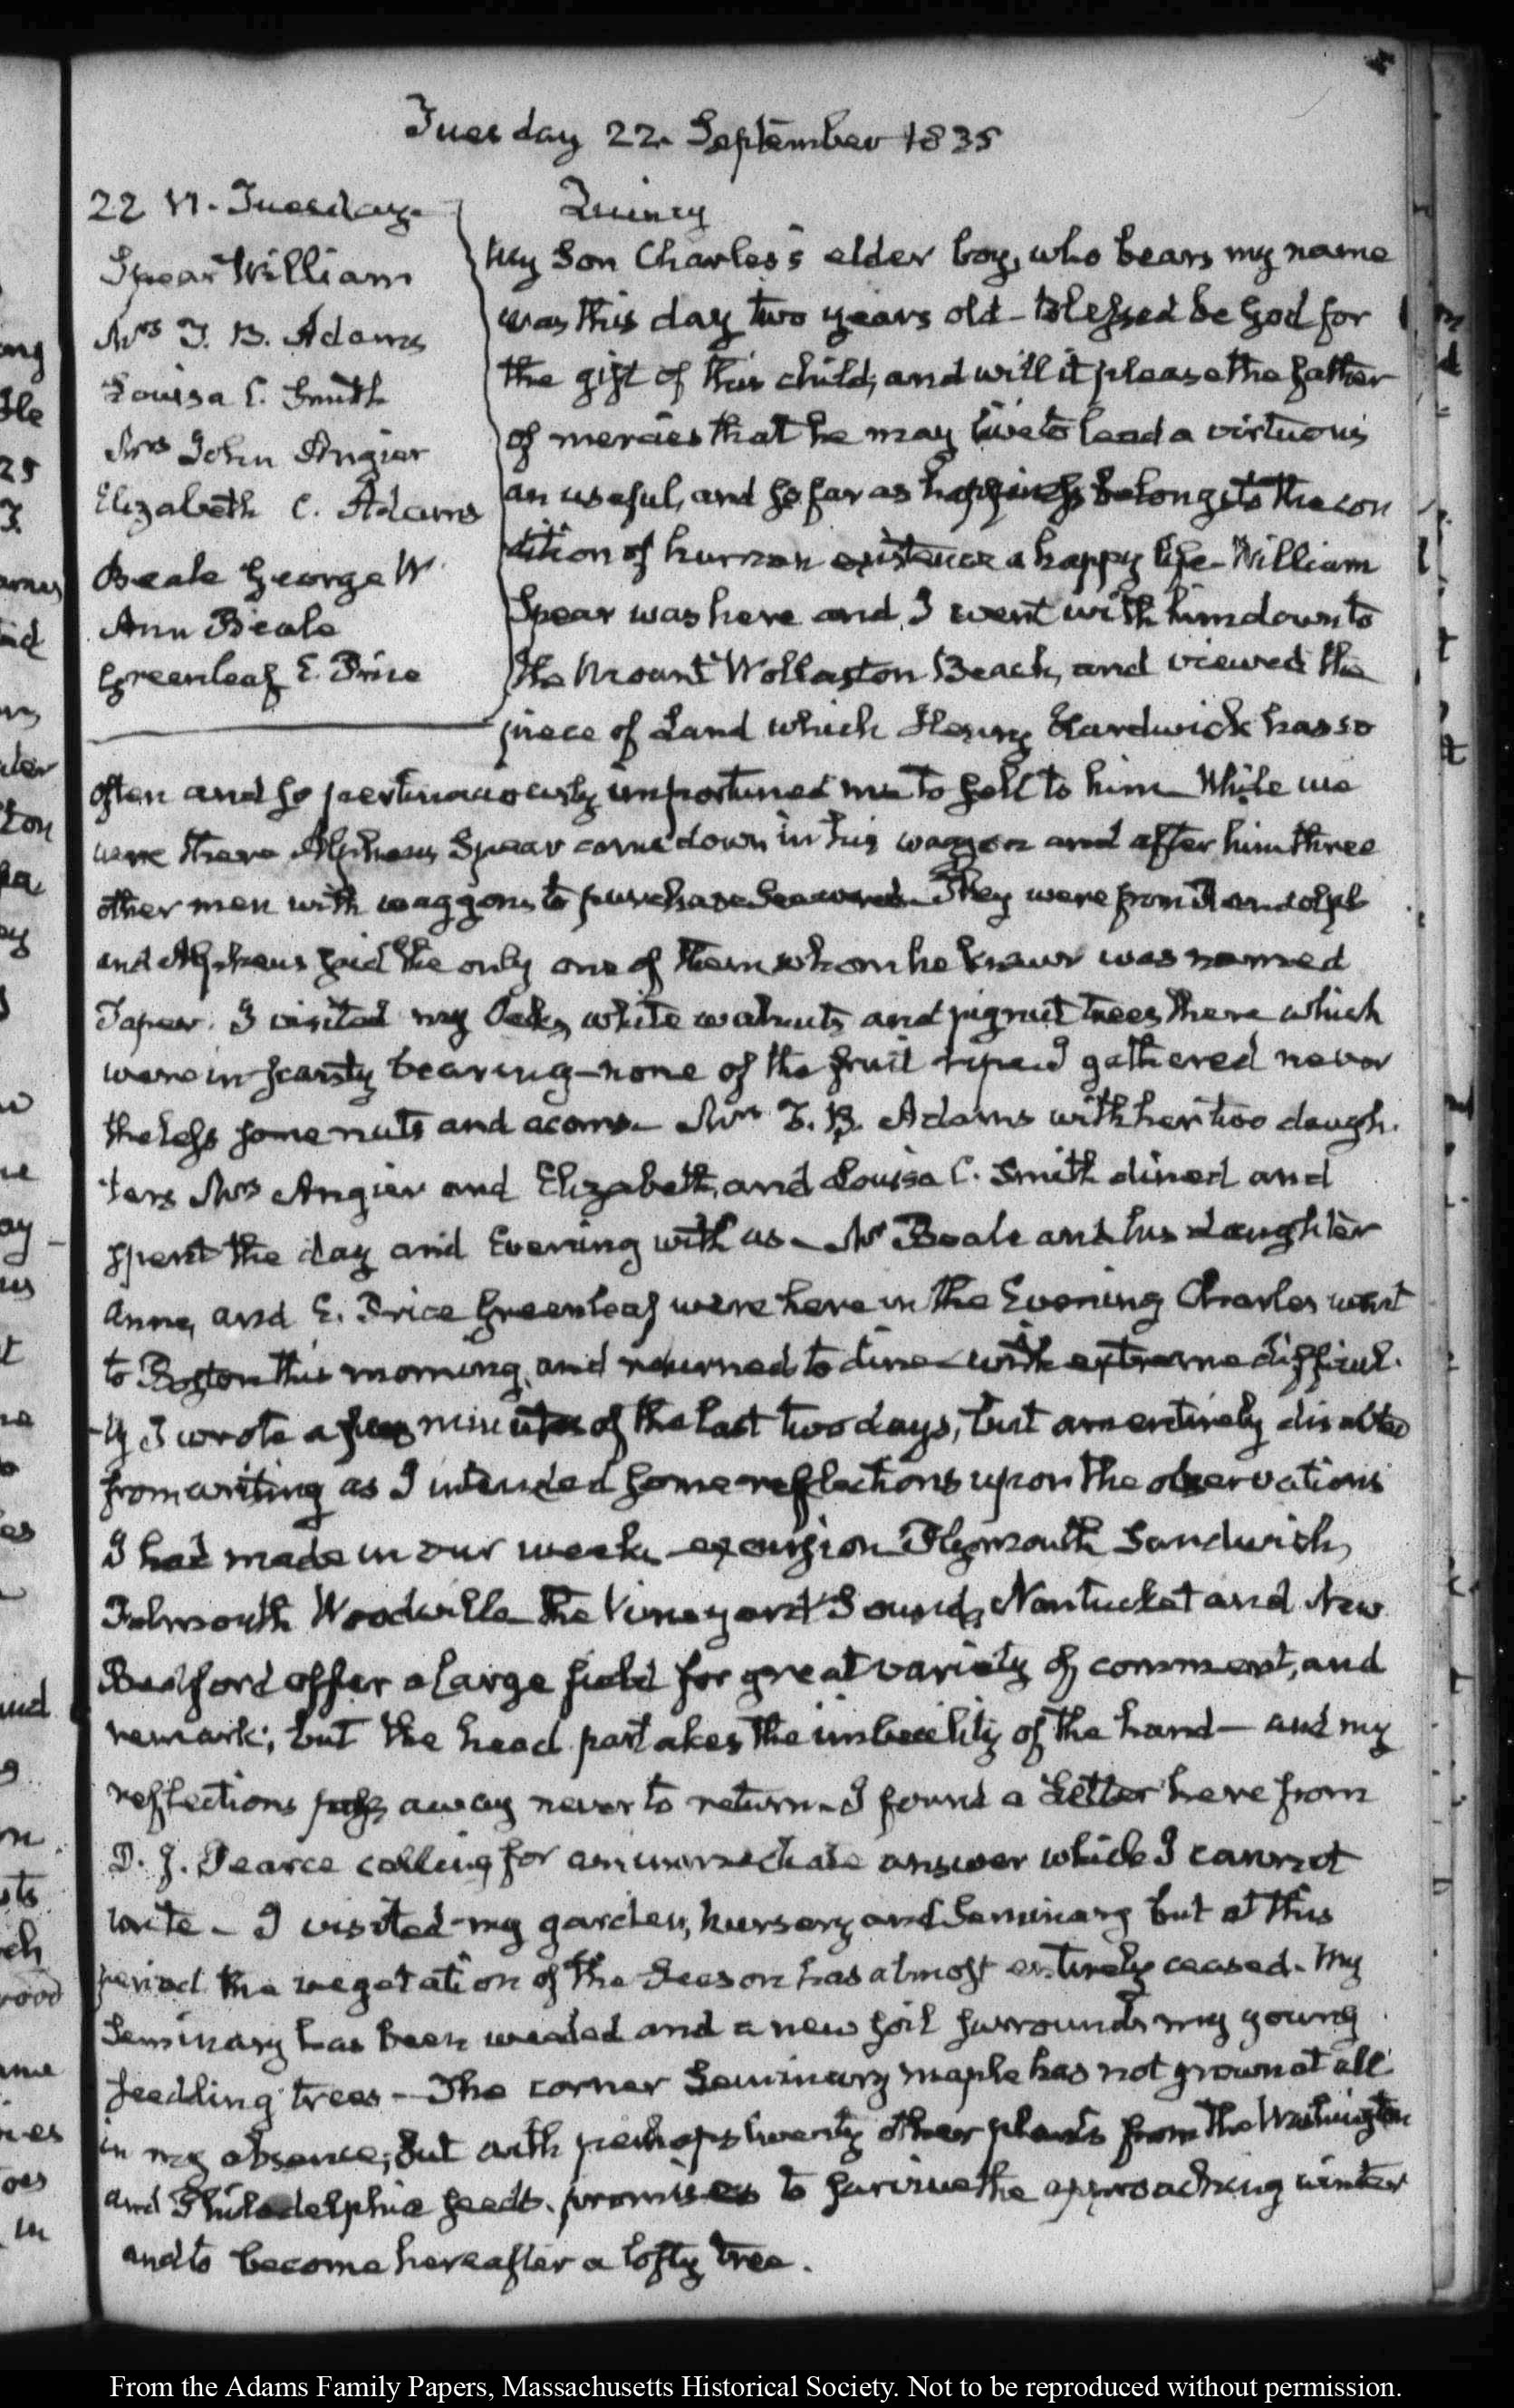 Tuesday 22. September 1835
22 VI. Tuesday.
Spear William
Mrs T. B. Adams
Louisa C. Smith
Mrs John Angier
Elizabeth C. Adams
Beale George W.
Ann Beale
Greenleaf E. Price
Quincy
My Son Charles's elder boy, who bears my name
was this day two years old – Blessed be God for
the gift of this child, and will it please the father
of mercies that he may live to lead a virtuous
an useful, and so far as happiness belongs to the con
dition of human existence a happy life – William
Spear was here and I went with him down to
the Mount Wollaston Beach, and viewed the
piece of Land which Henry Hardwick has so
often and so pertinaciously importuned me to sell to him – While we
were there Alpheus Spear came down in his waggon and after him three
other men with waggons to purchase Seaweed – They were from Randolph
and Alpheus said the only one of them whom he knew was named
I visited my Oaks, white walnuts and pignut trees there which
were in scanty bearing – none of the fruit ripe. I gathered never
theless some nuts and acorns – Mrs T. B. Adams with her two daugh.
ters Mrs Angier and Elizabeth, and Louisa C. Smith dined and
spent the day and Evening with us – Mr Beale and his daughter
Anne, and E. Price Greenleaf were here in the Evening Charles went
to Boston this morning, and returned to dine – with extreme difficul.
ty I wrote a few minutes of the last two days, but am entirely disabled
from writing as I intended some reflections upon the observations
I had made in our weeks excursion Plymouth Sandwich,
Falmouth Woodville the Vineyard Sound, Nantucket and New
Bedford offer a large field for great variety of comment, and
remark; but the head partakes the imbecility of the hand – and my
reflections pass away never to return – I found a Letter here from
D. J. Pearce calling for an immediate answer which I cannot
write – I visited my garden, nursery and Seminary but at this
period the vegetation of the Season has almost entirely ceased. My
Seminary has been weeded and a new soil surrounds my young
seedling trees – The corner Seminary maple has not grown at all
in my absence; but with perhaps twenty other plants from the Washington
and Philadelphia seeds. promises to survive the approaching winter
and to become hereafter a lofty tree.
From the Adams Family Papers, Massachusetts Historical Society. Not to be reproduced without permission.